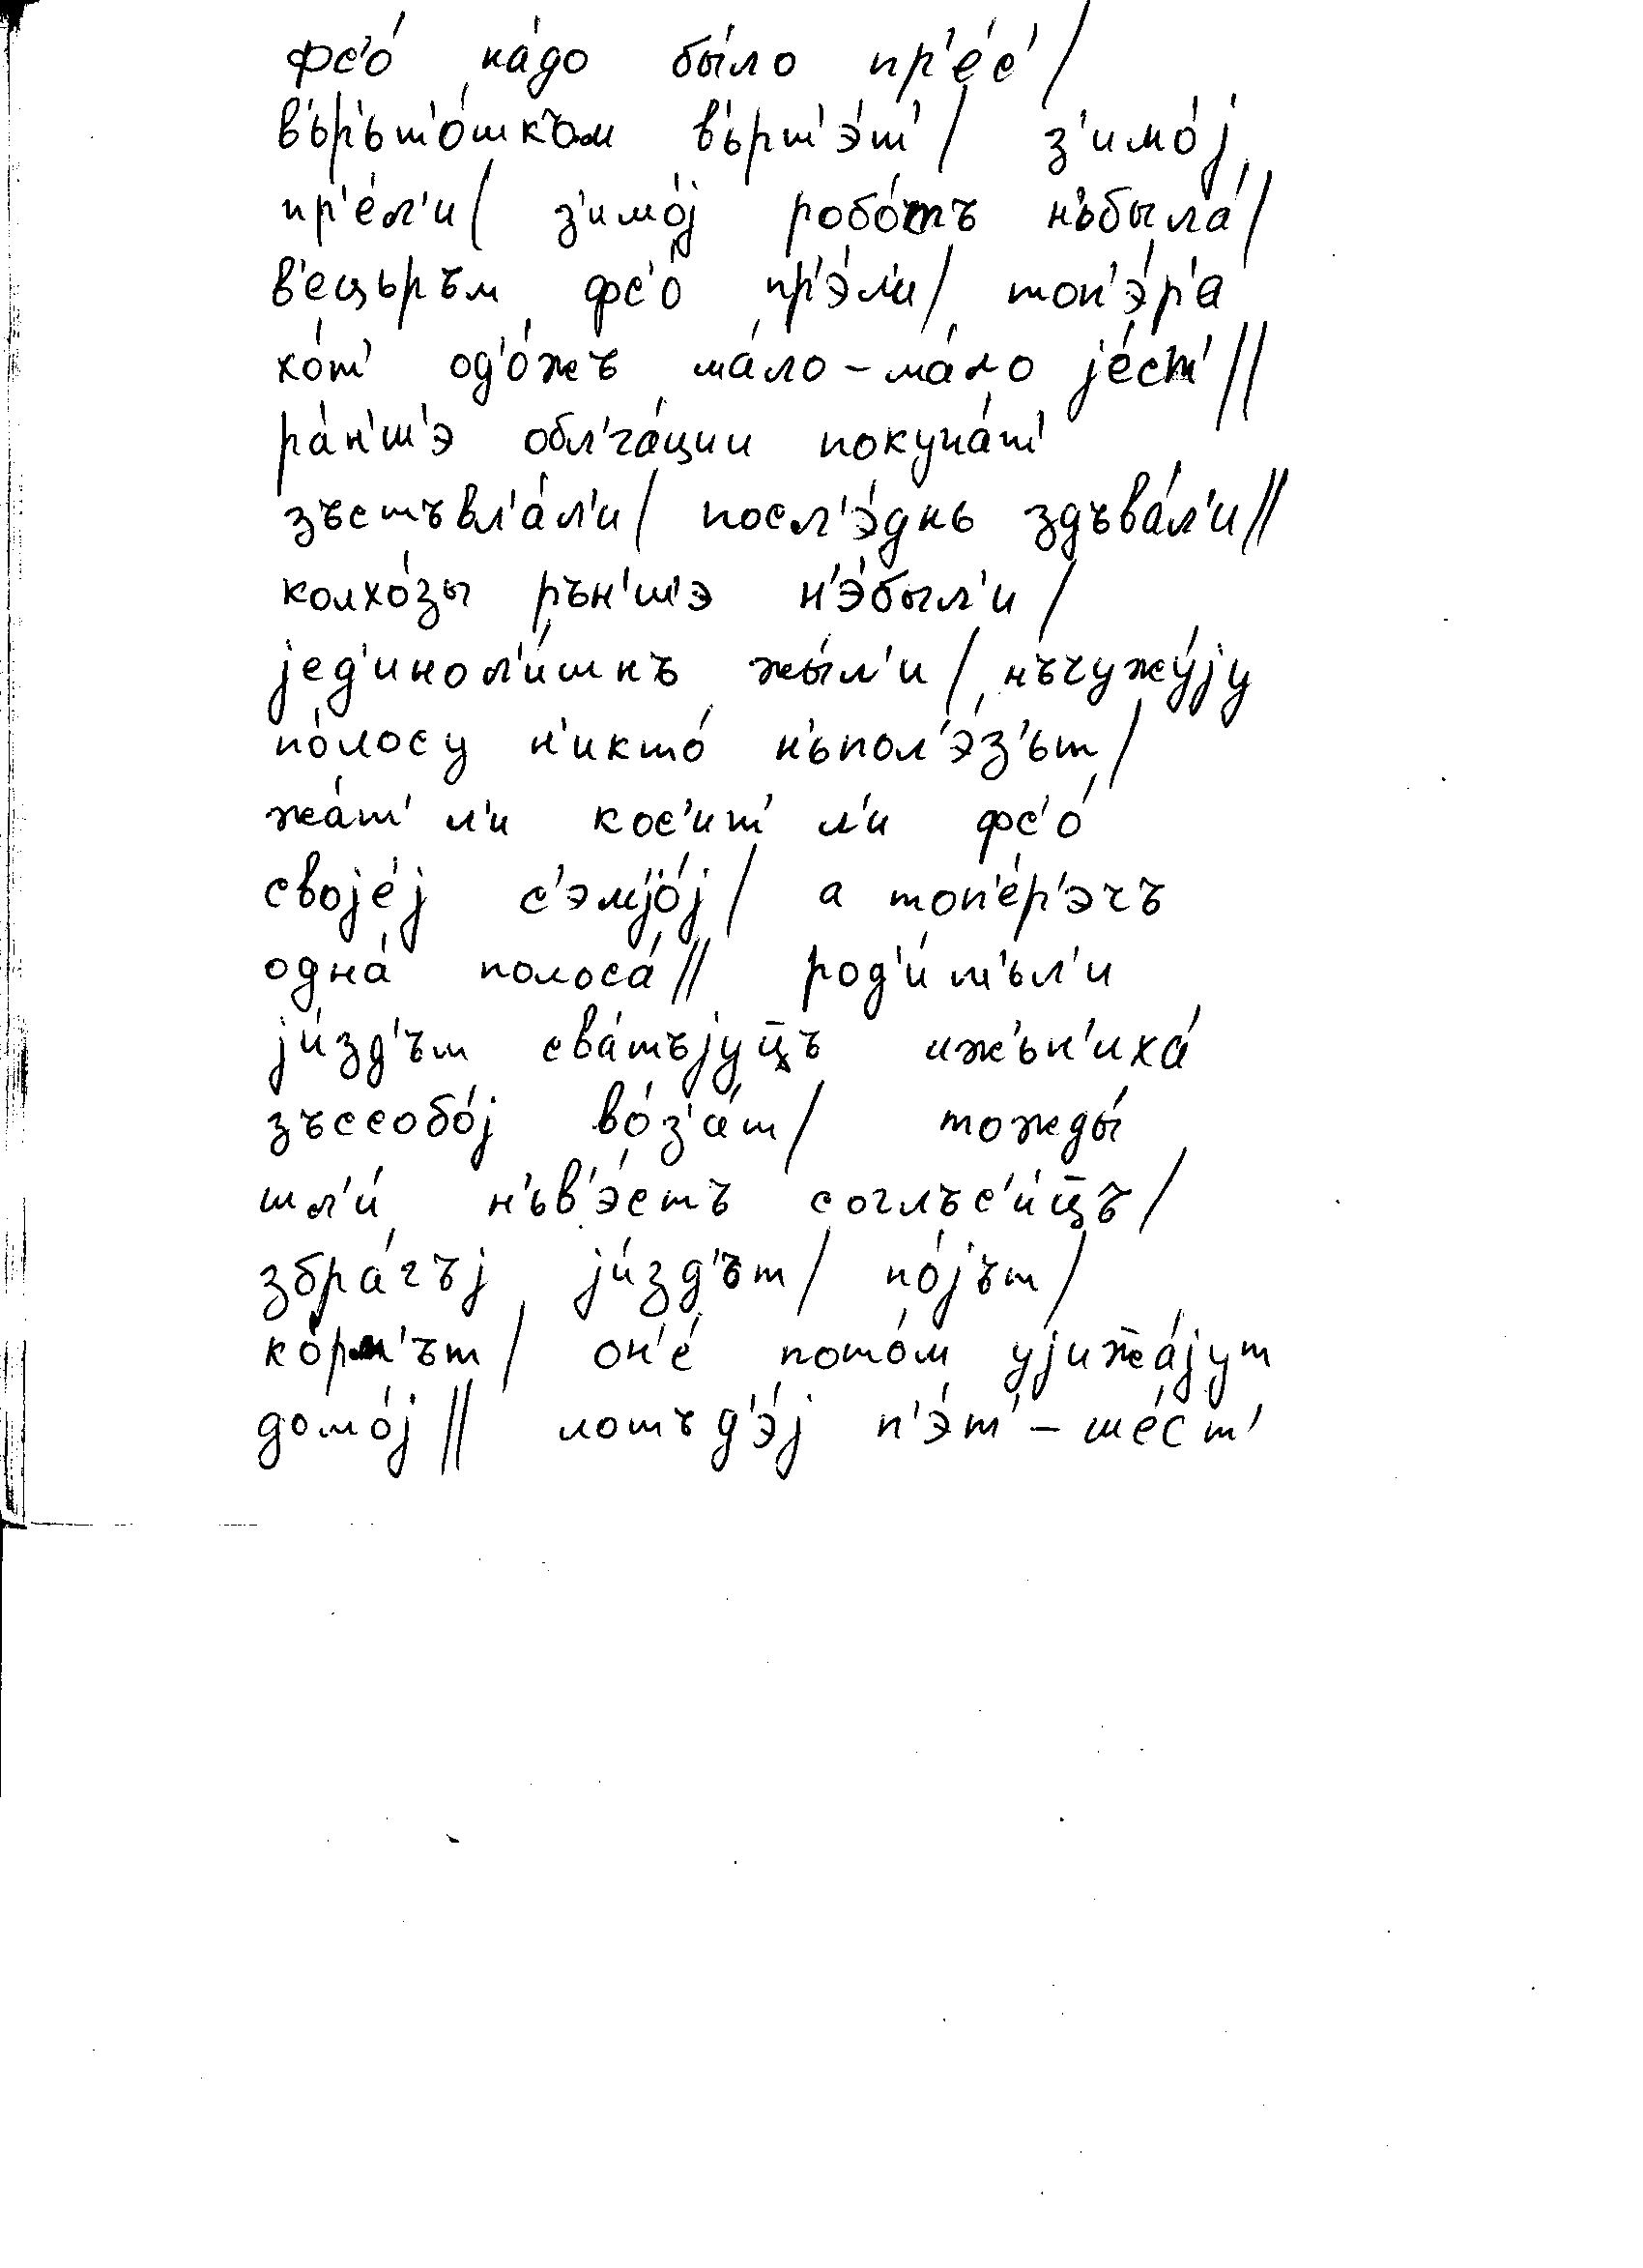 фс'о́ на́до бы́ло пр'е́с'/
в'ър'ьт'о́шкъм в'ьрт'э́т'/ з'имо́j
пр'е́л'и/ з'имо́j робо́тъ н'ьбыла́/
в'ецьръм фс'о́ пр'э́л'и/ топ'э́р'а
хо́т' од'о́жъ ма́ло-ма́ло jе́ст'//
ра́н'ш'э обл'га́ции покупа́т'
зъстъвл'а́л'и/ посл'э́днь здъва́л'и//
колхо́зы рън'ш'э н'э́был'и/
jед'инол'и́шнъ жы́л'и/ нъчужу́jу
по́лосу н'икто́ н'ьпол'э́з'ьт/
жа́т' л'и кос'ит' л'и фс'о́
своjе́j с'эмjо́j/ а топ'е́р'эчъ
одна́ полоса́// род'и́т'ьл'и
jи́зд'ът сва́тъjуц̄ъ ижън'иха́
зъссобо́j во́з'а́т/ тожды́
шл'и́ н'ьв'э́стъ соглъс'и́ц̄ъ/
збра́гъj jи́зд'ът/ по́jът/
ко́рм'ът/ он'е́ пото́м уjиж̄а́jут
домо́j// лошъд'э́j п'э́т'-ше́ст'